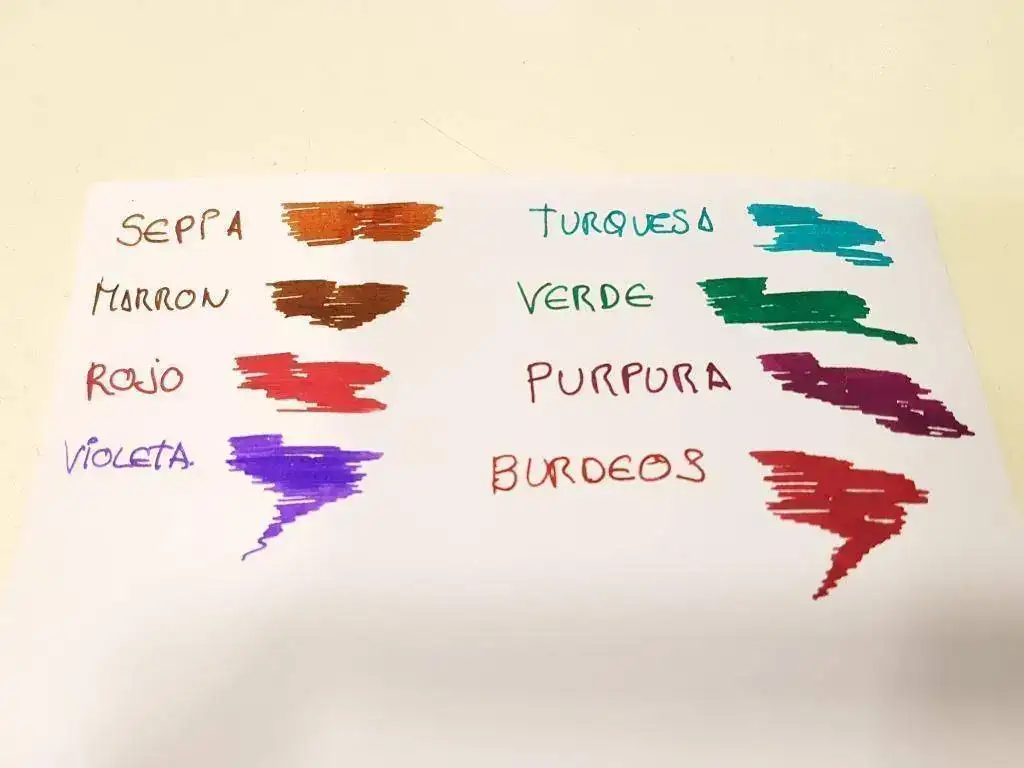 SEPPA
MARRON
ROJO
VIOLETA.
TURQUESA
VERDE
PURPURA
BURDEOS